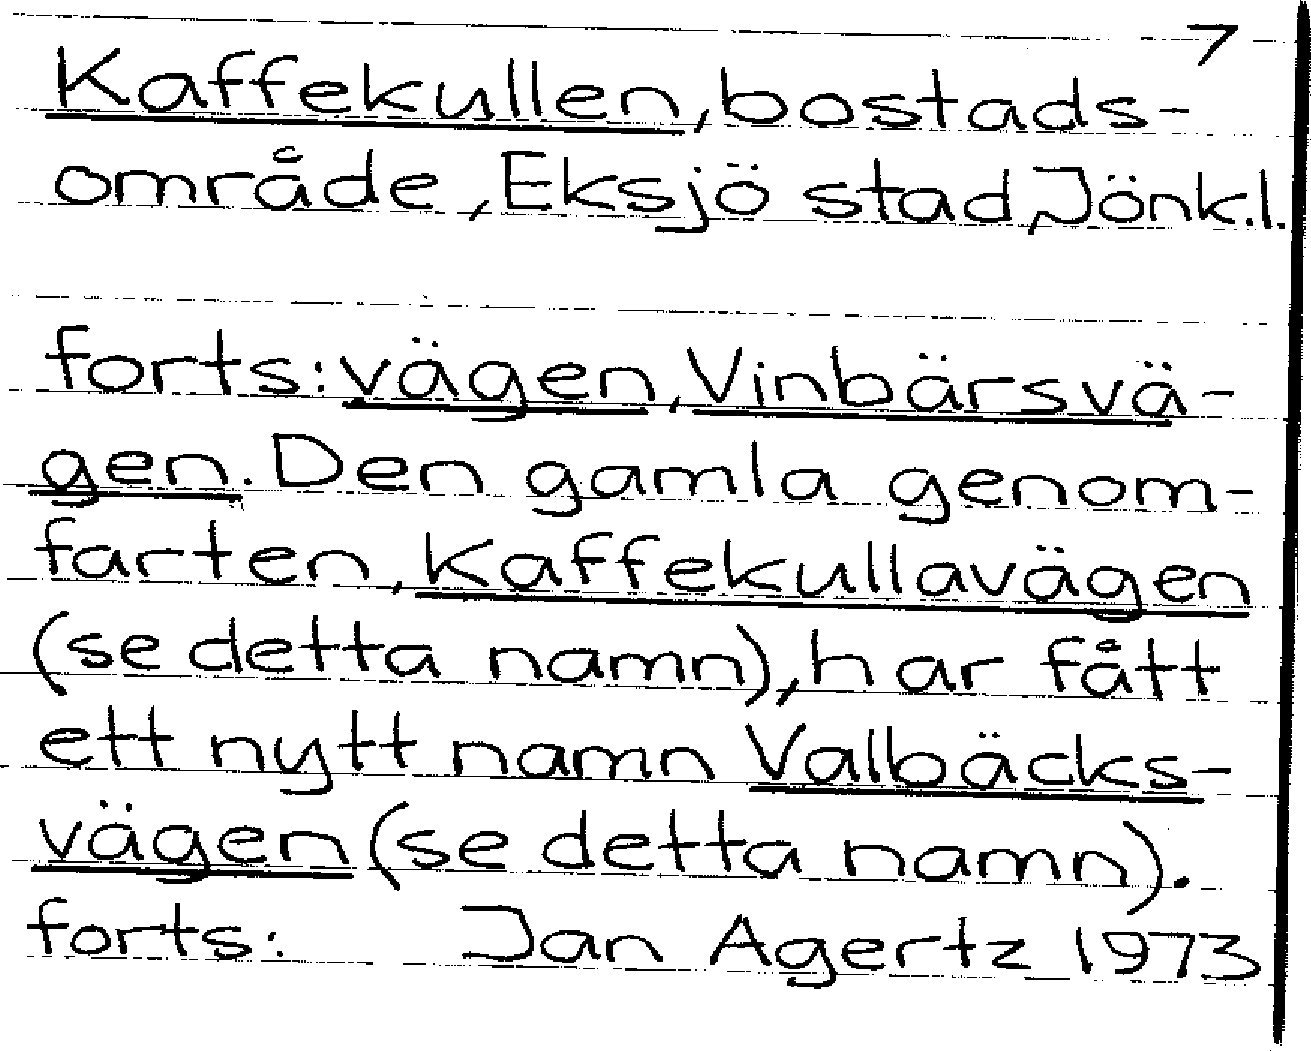 7
Kaffekullen, bostads-
område, Eksjö stad, Jönk.l.
forts: vägen, Vinbärsvä-
gen. Den gamla genom-
farten, Kaffekullavägen
(se detta namn), har fått
ett nytt namn Valbäcks-
vägen (se detta namn).
forts: Jan Agertz 1973